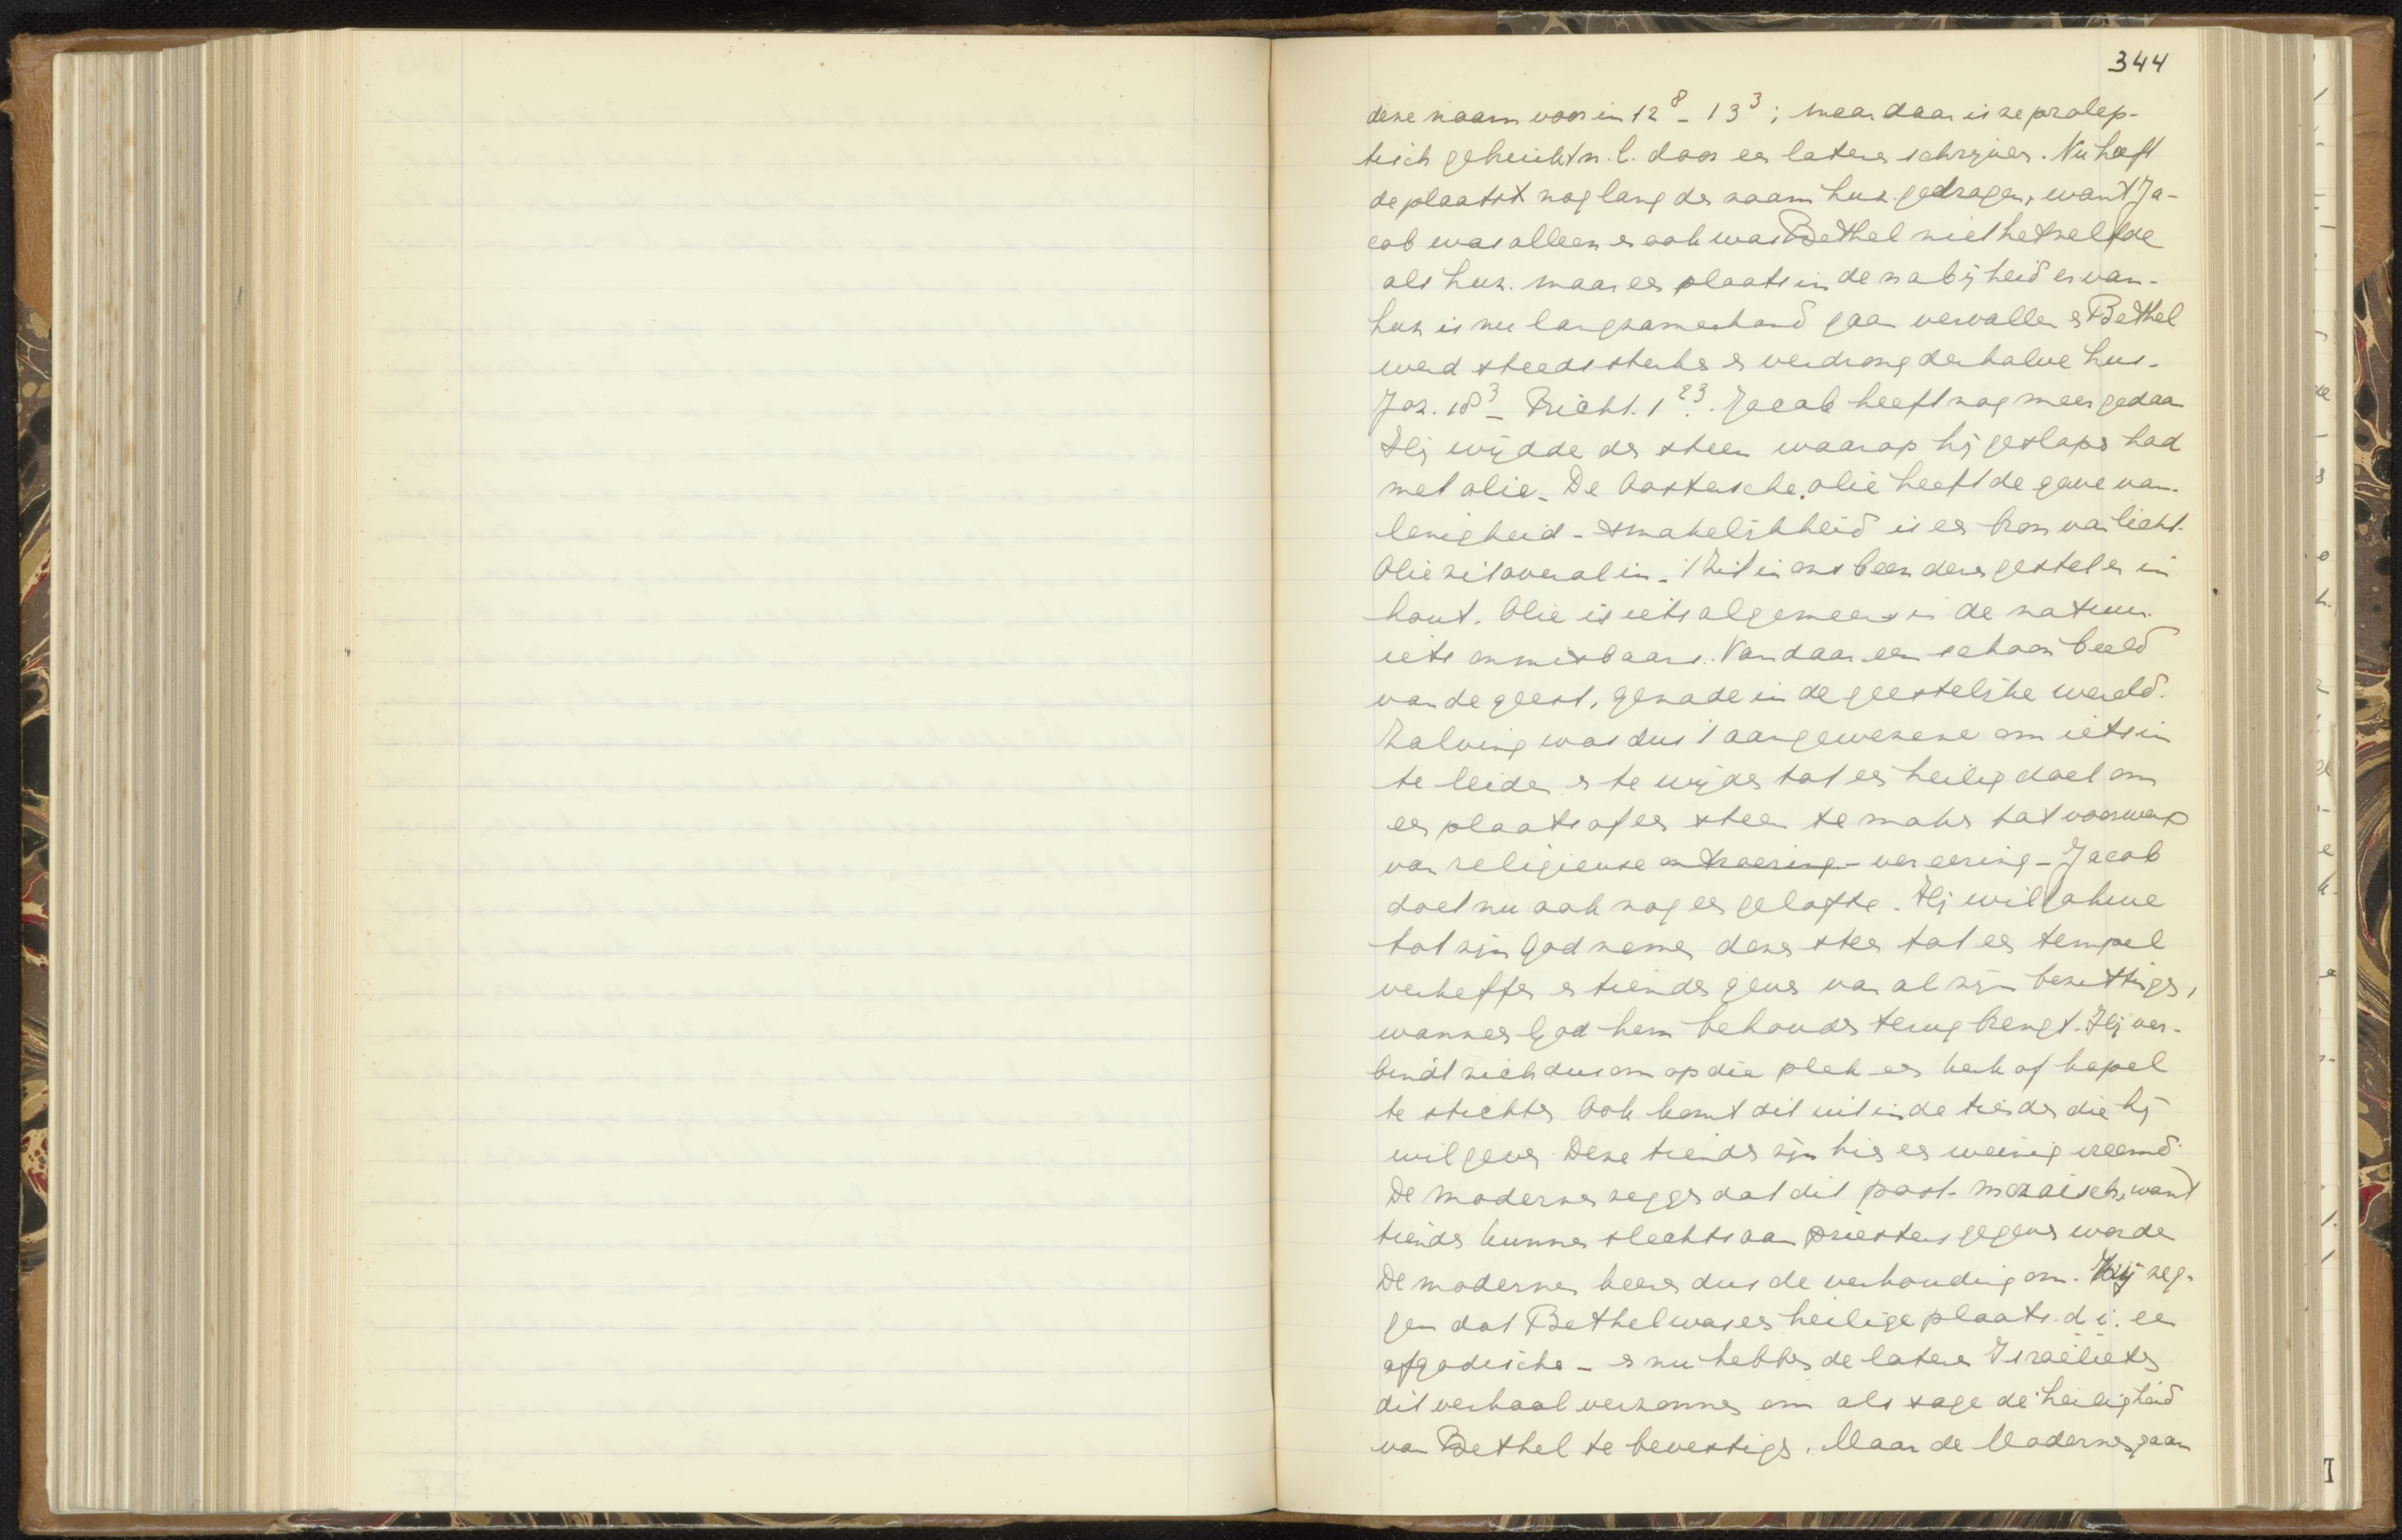 344
deze naam voor in 12⁸ - 13³; maar daar is ze prolep-
tisch gebruikt n.l. door een latere schrijver. Nu heeft
de plaatst nog lang de naam Luz gedragen, want Ja-
cob was alleen en ook was Bethel niet hetzelfde
als Luz. maar een plaats in de nabijheid ervan.
Luz is nu langzamerhand gaan vervallen en Bethel
werd steeds sterker en verdrong derhalve Luz.
Joz. 18³ - Richt. 1²³. Jacob heeft nog meer gedaan
Hij wijdde den steen waarop hij geslapen had
met olie - De Oostersche olie heeft de gave van
lenigheid - smakelijkheid is een bron van licht.
Olie zit overal in - 't Zit in ons beenderengestel en in
hout. Olie is iets algemeens in de natuur.
iets onmisbaars. Vandaar een schoon beeld
van de geest, genade in de geestelijke wereld.
Zalving was dus 't aangewezene om iets in
te leiden en te wijden tot een heilig doel om
een plaats of een steen te maken tot voorwerp
van religieuse vereering - Jacob
doet nu ook nog een gelofte. Hij wil Jahwe
tot zijn God nemen dezen steen tot een tempel
verheffen en tienden geven van al zijn bezittingen,
wanneer God hem behouden terug brengt. Hij ver-
bindt zich dus om op die plek een kerk of kapel
te stichten. Ook komt dit uit in de tienden die hij
wil geven. Deze tienden zijn hier een weinig vreemd.
De modernen zeggen dat dit post-mozaisch, want
tienden kunnen slechts aan priesters gegeven worden
De modernen keeren dus de verhouding om. Zij zeg-
gen dat Bethel was een heilige plaats. d.i. een
afgodische - en nu hebben de latere Israëlieten
dit verhaal verzonnen om als sage de heiligheid
van Bethel te bevestigen. Maar de Modernen gaan